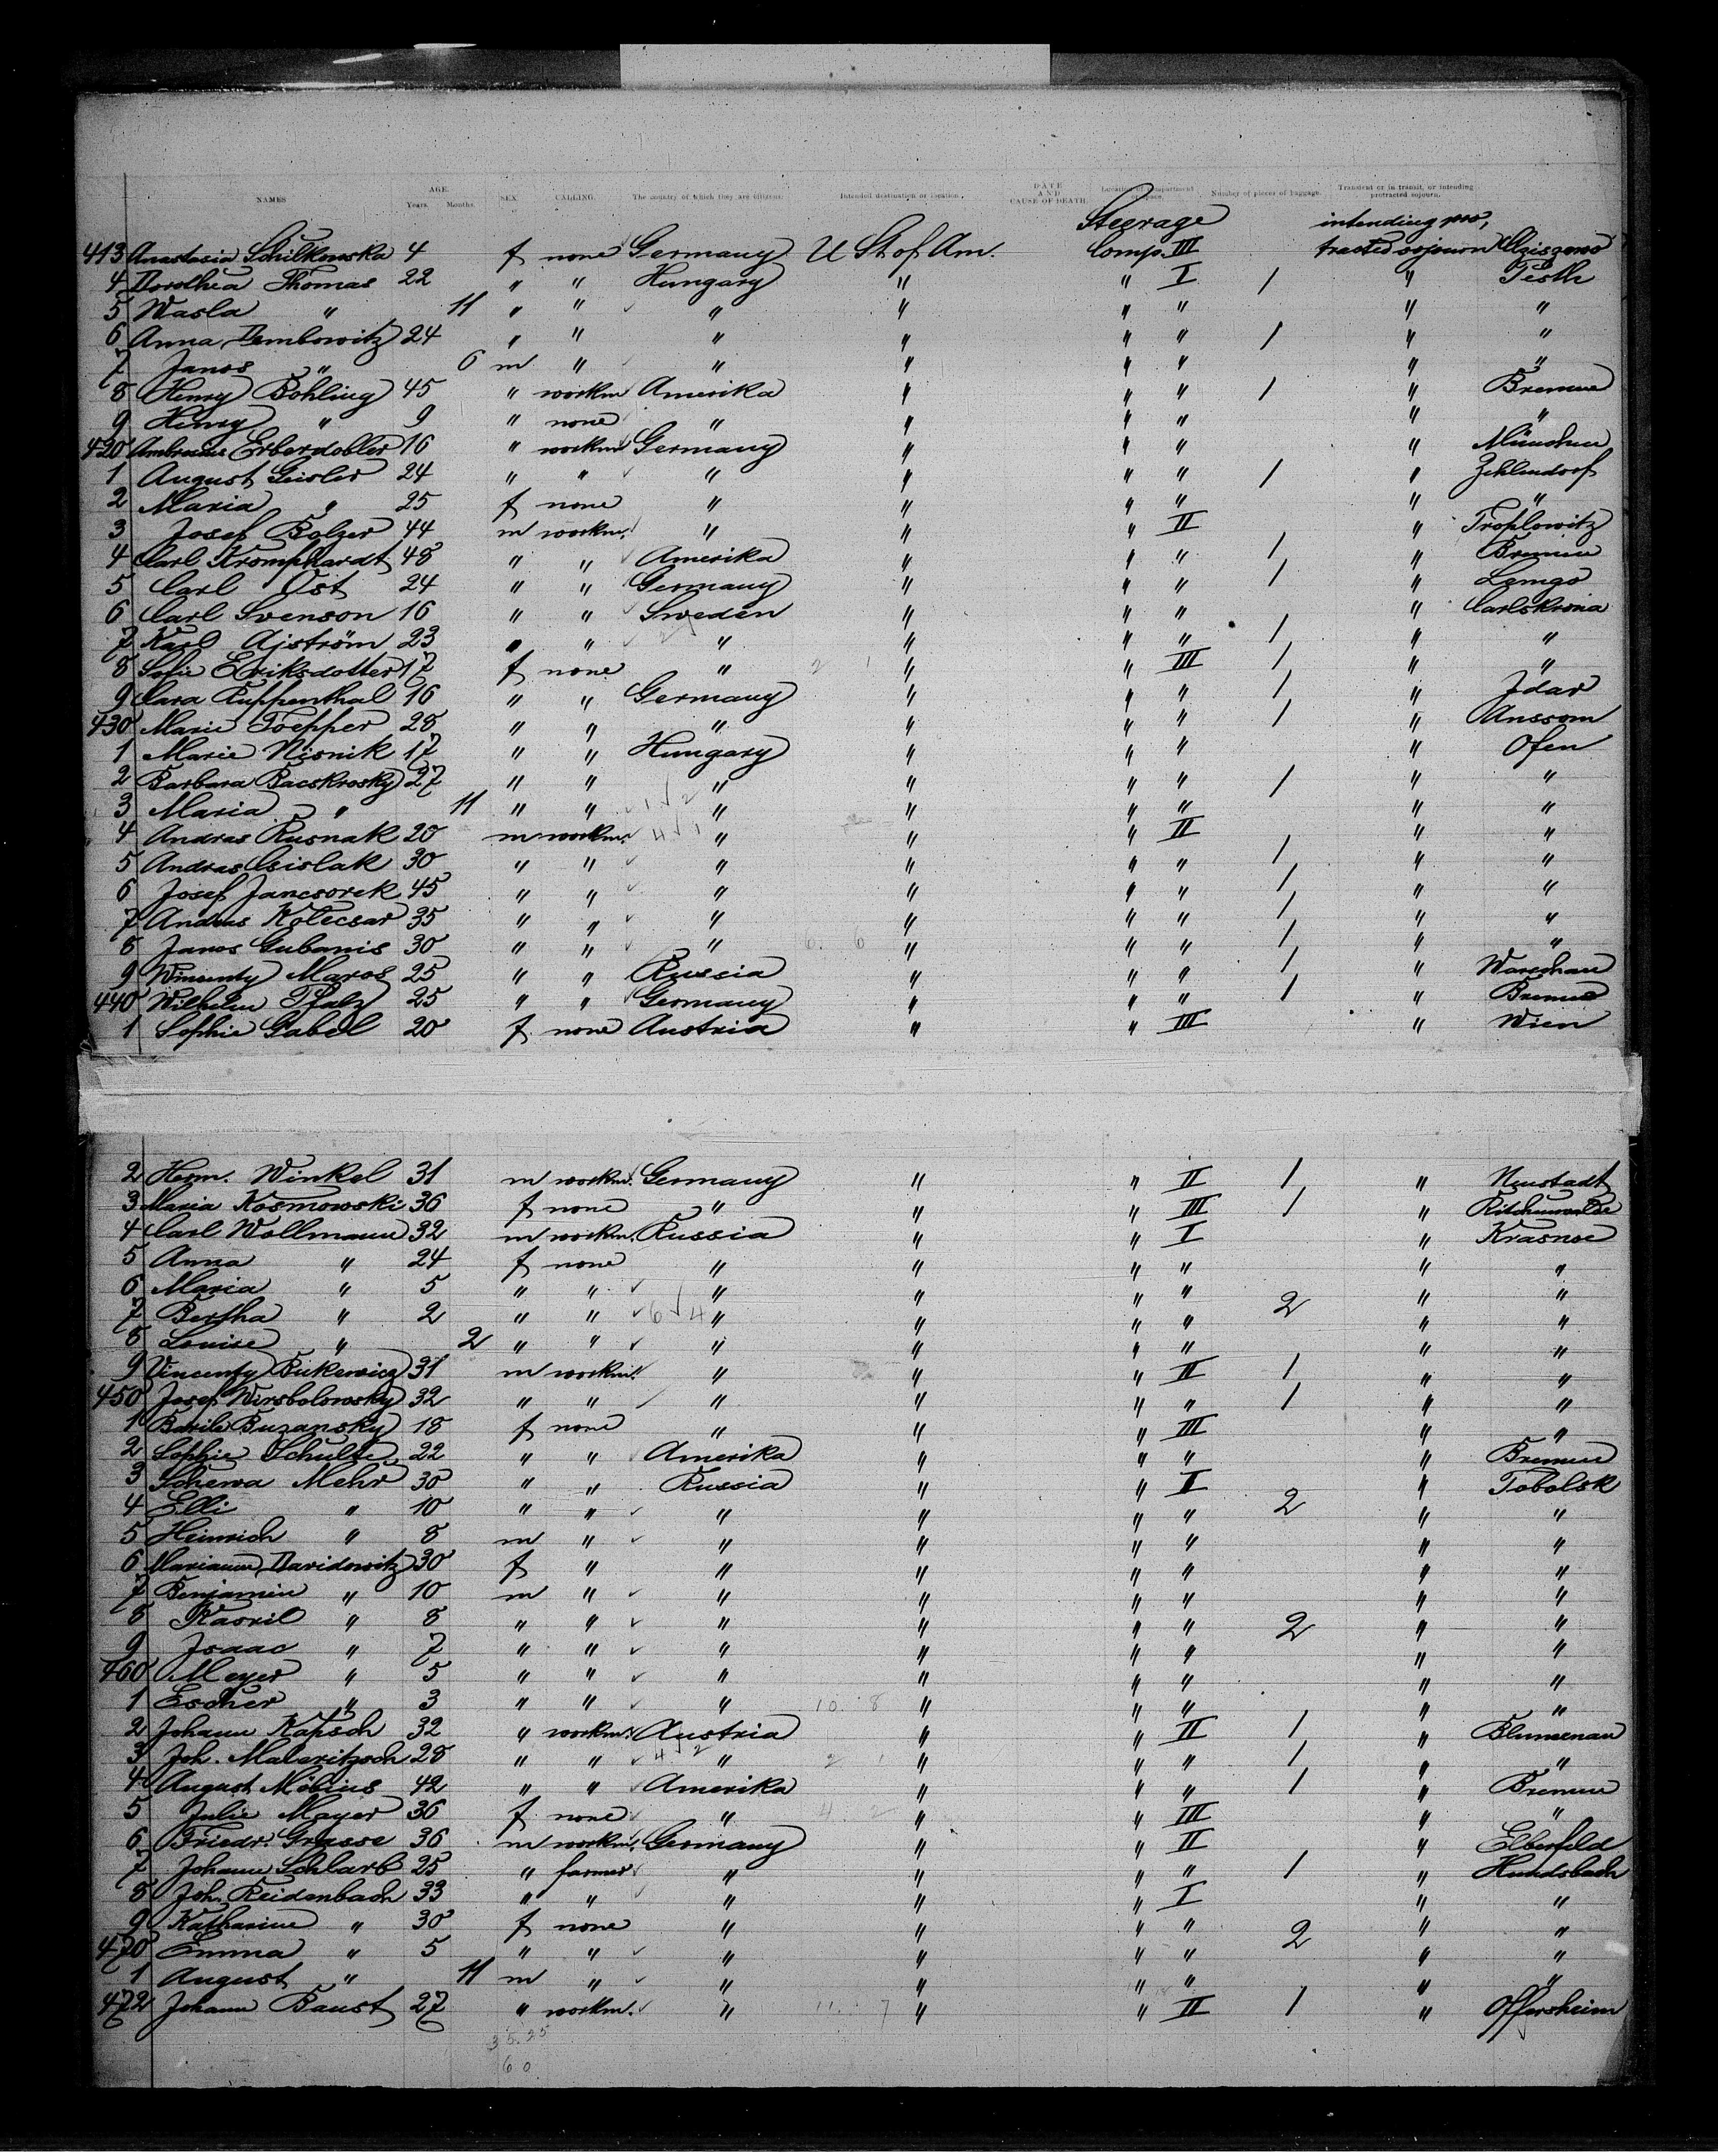 NAMES AGE. Years. Months. SEX CALLING. The country of which they are citizens. Intended destination or location. DATE AND CAUSE OF DEATH. Location of compartment or space. Number of pieces of baggage. Transient or in transit, or intending protracted sojourn.
Steerage intending pro,
413 Anastasia Schilkowska 4 f none Germany U St of Am. Comp. III tracted sojourn
4 Dorothea Thomas 22 " " Hungary " " I 1 " Pesth
5 Wasla " 11 " " " " " " " "
6 Anna Dembowitz 24 " " " " " " 1 " "
7 Janos " 6 m " " " " " " "
8 Henry Bohling 45 " workm Amerika " " " 1 " Bremen
9 Henry " 9 " none " " " " " "
420 Ambrosius Erberdobler 16 " workm Germany " " " " München
1 August Geisler 24 " " " " " " 1 " Zehlendorf
2 Maria " 25 f none " " " " " "
3 Josef Bolzer 44 m workm. " " " II " Troplowitz
4 Carl Kromphardt 48 " " Amerika " " " 1 " Bremen
5 Carl Ost 24 " " Germany " " " 1 " Lemgo
6 Carl Svenson 16 " " Sweden " " " " Carlskrona
7 Karl Ajström 23 " " " " " " 1 " "
8 Sofie Eriksdotter 17 f none " " " III 1 " "
9 Clara Ruppenthal 16 " " Germany " " " 1 " Idar
430 Marie Toepper 28 " " " " " " 1 " Anssom
1 Marie Nisnik 17 " " Hungary " " " " Ofen
2 Barbara Bacskrosky 27 " " " " " " 1 " "
3 Maria " 11 " " " " " " " "
4 Andras Rusnak 20 m workm. " " " II " "
5 Andras Csislak 30 " " " " " " 1 " "
6 Josef Jancsorek 45 " " " " " " 1 " "
7 Andras Kolecsar 35 " " " " " " 1 " "
8 Janos Gubanis 30 " " " " " " 1 " "
9 Wincenty Maros 25 " " Russia " " " 1 " Warschau
440 Wilhelm Pfalz 25 " " Germany " " " 1 " Bremen
1 Sophie Gabel 20 f none Austria " " III " Wien
2 Herm. Winkel 31 m workm. Germany " " II 1 " Neustadt
3 Maria Kosmowski 36 f none " " " III 1 "
4 Carl Wollmann 32 m workm. Russia " " I " Krasnoe
5 Anna " 24 f none " " " " " "
6 Maria " 5 " " " " " " " "
7 Bertha " 2 " " " " " " 2 " "
8 Louise " 2 " " " " " " " "
9 Vincenty Rukewicz 31 m workm. " " " II 1 " "
450 Josef Wirsbolowsky 32 " " " " " " 1 " "
1 Basile Buzansky 18 f none " " " III " "
2 Sophie Schulte 22 " " Amerika " " " " Bremen
3 Schewa Mehr 30 " " Russia " " I " Tobolsk
4 Elli " 10 " " " " " " 2 " "
5 Heinrich " 8 m " " " " " " "
6 Marianne Davidowitz 30 f " " " " " " "
7 Benjamin " 10 m " " " " " " "
8 Kasril " 8 " " " " " " 2 " "
9 Isaac " 7 " " " " " " " "
460 Meyer " 5 " " " " " " " "
1 Escher " 3 " " " 10 8 " " " " "
2 Johann Kapsch 32 " workm. Austria " " II 1 " Blumenau
3 Joh. Maleritzsch 28 " " " " " " 1 " "
4 August Möbius 42 " " Amerika " " " 1 " Bremen
5 Julie Mayer 36 f none " 4 2 " " III " "
6 Friedr. Grasse 36 m workm. Germany " " II " Elberfeld
7 Johann Schlarb 25 " farmer " " " " 1 " Hundsbach
8 Joh. Reidenbach 33 " " " " " I " "
9 Katharine " 30 f none " " " " 2 " "
470 Emma " 5 " " " " " " " "
1 August " 11 m " " " " " " "
472 Johann Baust 27 " workm. " 11 7 " " II 1 " Offersheim
35.25
60